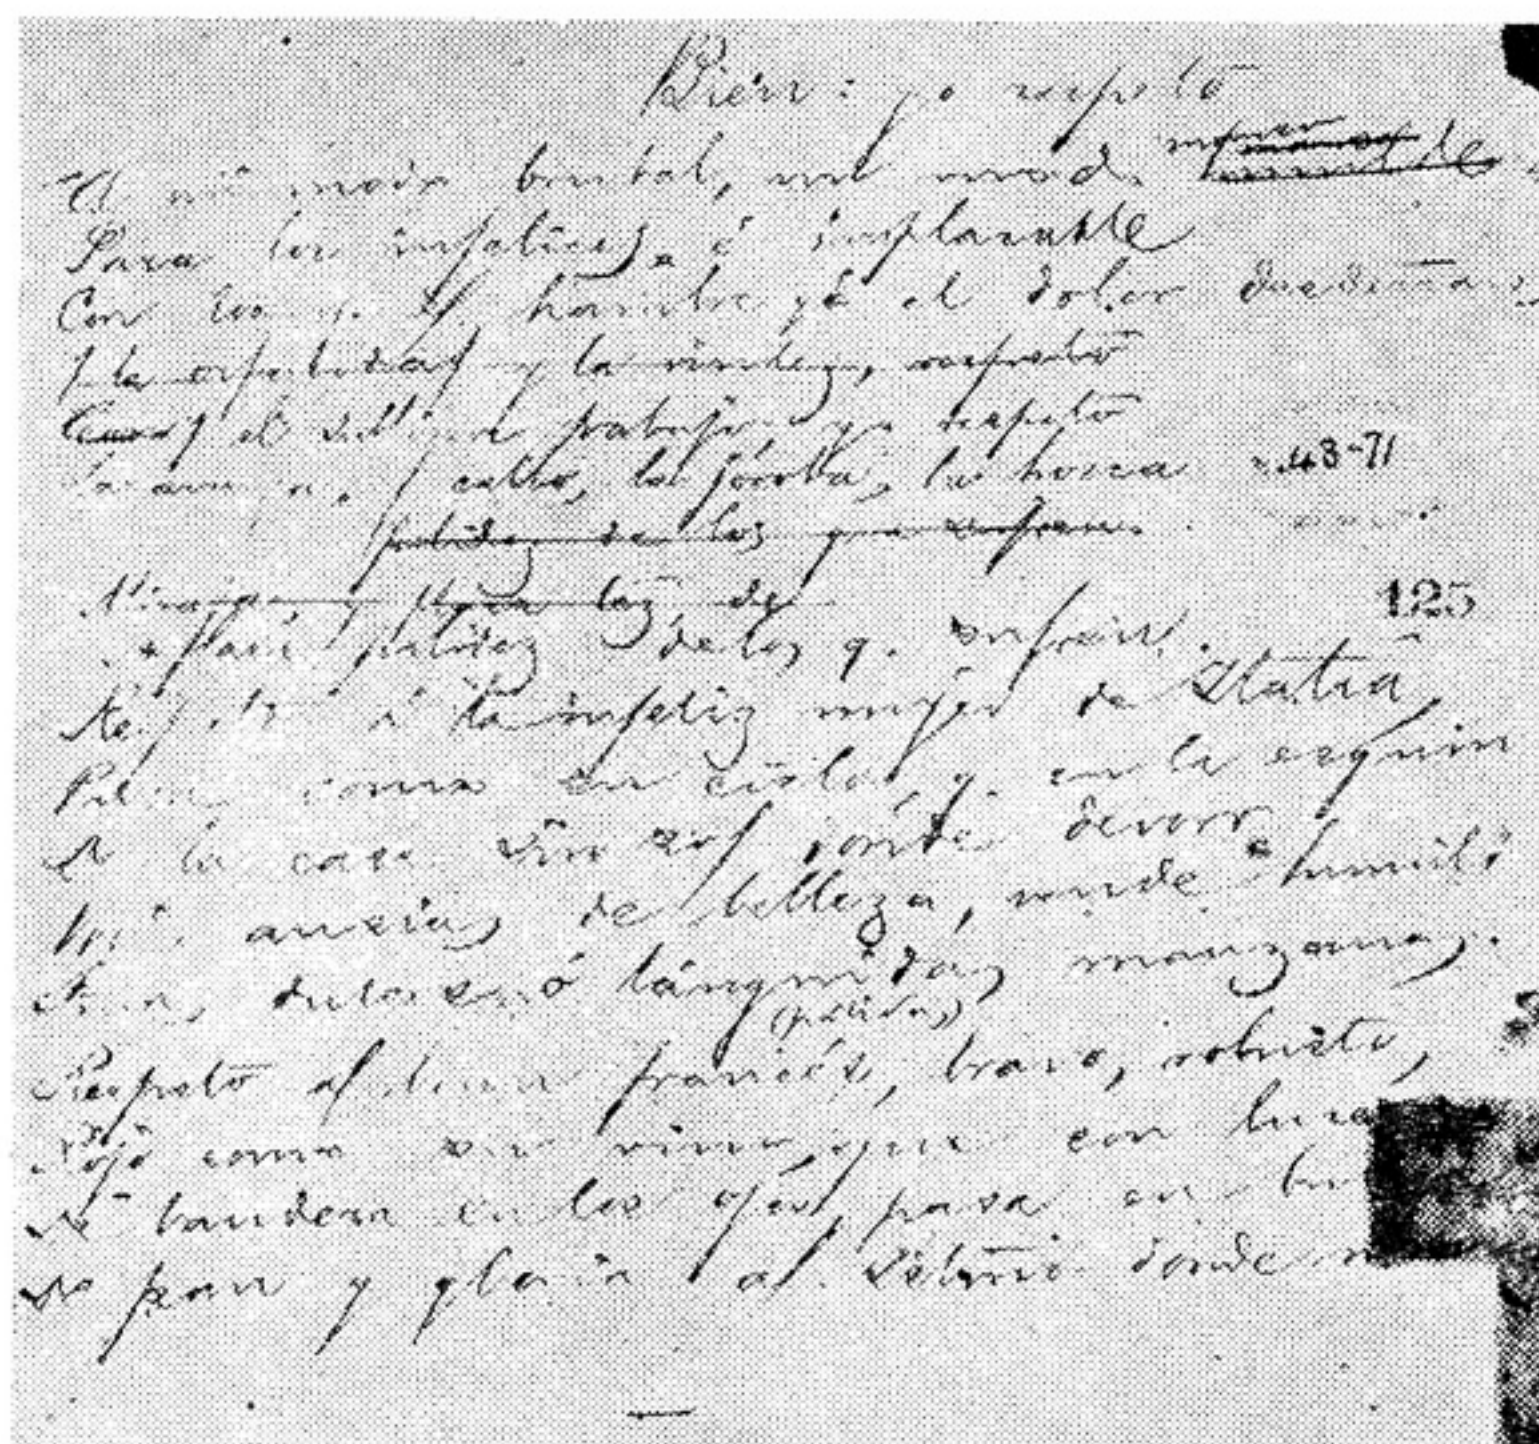 Bien: yo respeto
A mi modo brutal, un modo manso
Para los infelices, e implacable
Con los q. el hambre y el dolor desdeñan
Y la orfandad y la viudez, respeto
Y el sublime trabajo, yo respeto
La arruga, el callo, la joroba, la hosca
48-71
palidez de los que sufren
125
y flaca palidez de los q. sufren.
Respeto a la infeliz mujer de Italia,
Pura como su cielo, q. en la esquina
De la casa sin sol donde devoro
Mis ansias de belleza, vende humilde
Piñas dulces ó lánguidas manzanas.
(pálidas)
Respeto al buen francés, bravo, robusto,
Rojo como su vino, que con luces
De bandera en los ojos, pasa en bu
De pan y gloria al Istmo donde